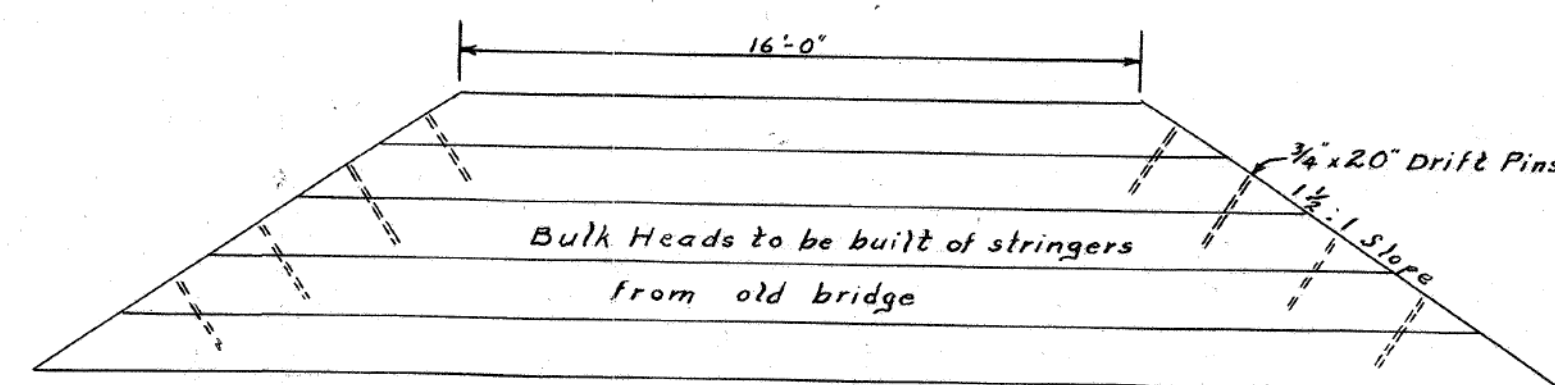 16'-0"
3/4" x 20" Drift Pins
1 1/2 : 1 Slope
Bulk Heads to be built of stringers
from old bridge